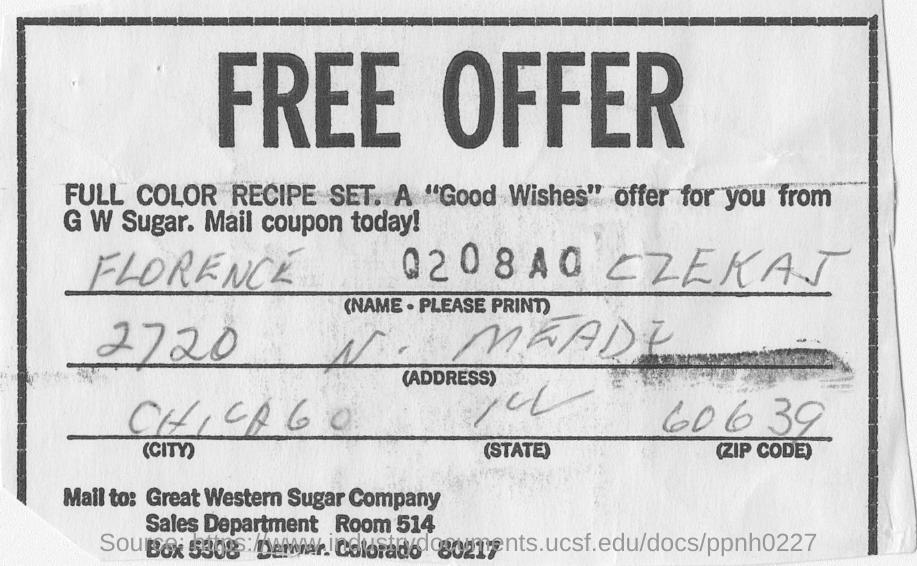 FREE OFFER
FULL COLOR RECIPE SET. A "Good Wishes" offer for you from
G W Sugar. Mail coupon today!
FLORENCE 0208A0 CZEKAJ
(NAME - PLEASE PRINT)
2720 N. MEADE
(ADDRESS)
CHICAGO Ill 60639
(CITY) (STATE) (ZIP CODE)
Mail to: Great Western Sugar Company
Sales Department Room 514
Box 5308 Denver, Colorado 80217
Source: https://www.industrydocuments.ucsf.edu/docs/ppnh0227